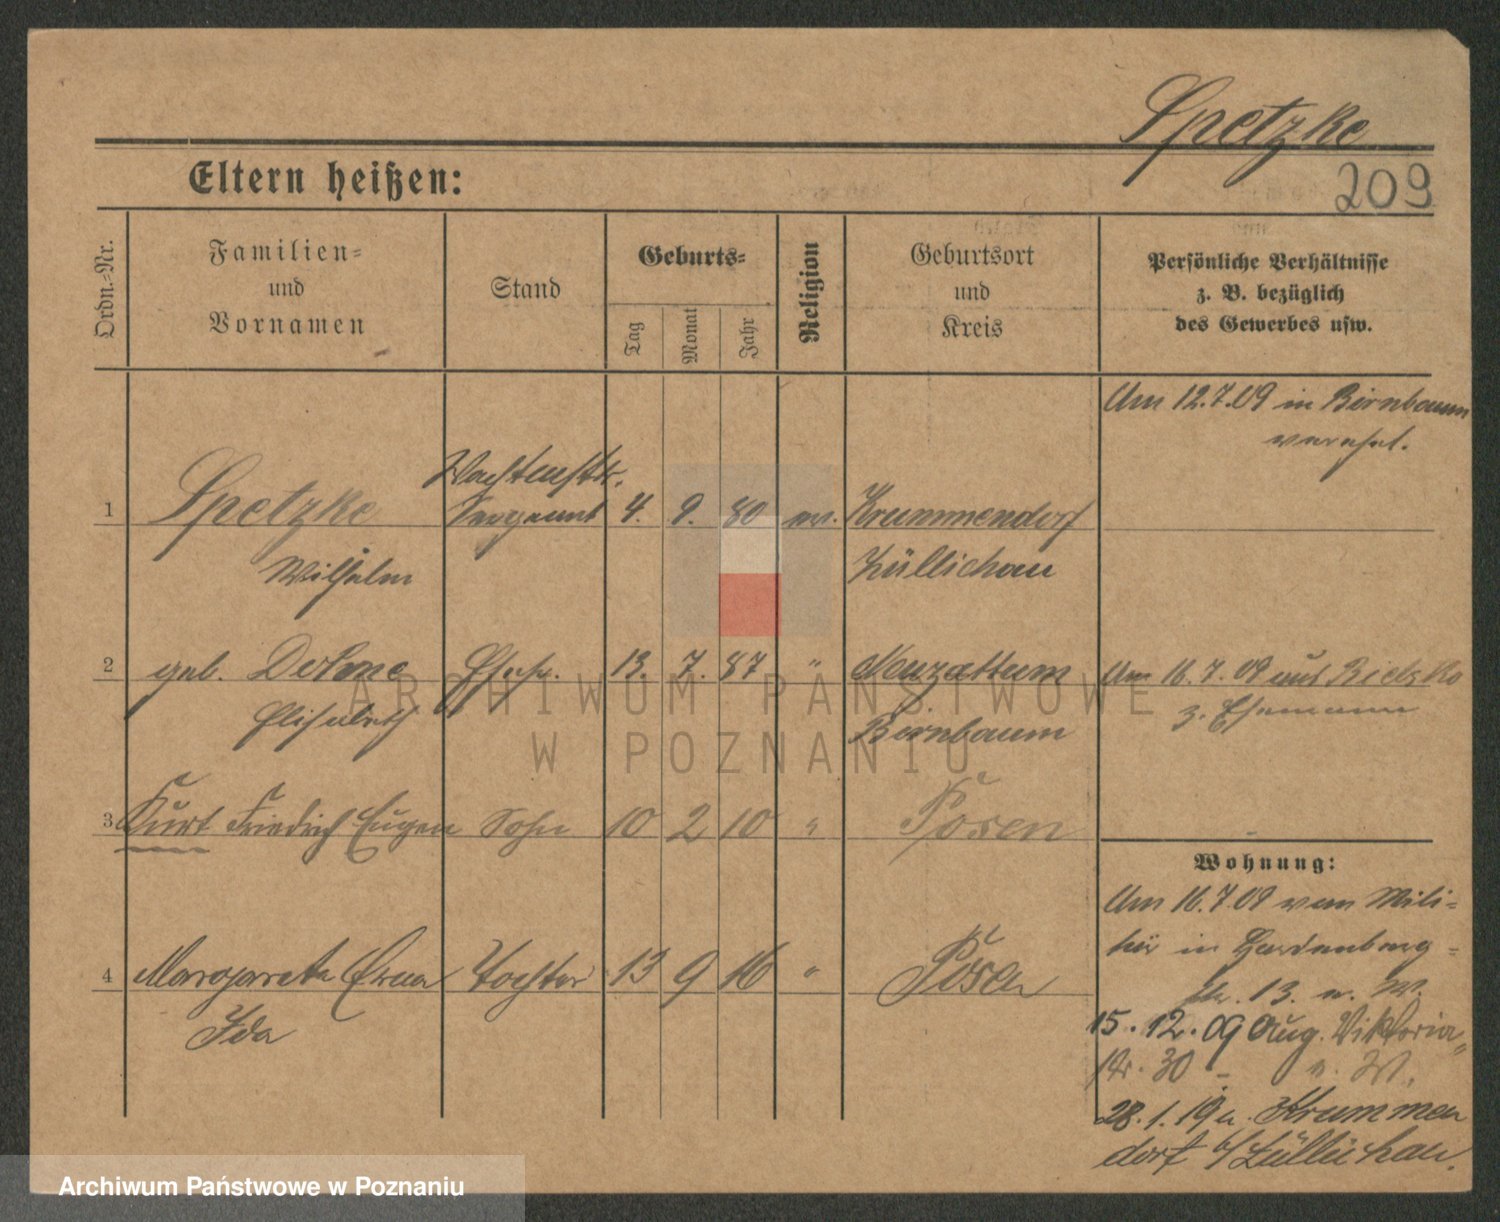 Spetzke
Eltern heißen:
209
Ordn.-Nr.
Familien-
und
Vornamen
Stand
Geburts-
Tag
Monat
Jahr
Religion
Geburtsort
und
Kreis
Persönliche Verhältnisse
z. B. bezüglich
des Gewerbes usw.
Am 12.7.09 in Birnbaum
verehel.
1 Spetzke Sergeant 4. 9. 80 ev. Krummendorf
Wilhelm Züllichau
2 geb. Ehefr. 13. 7. 87 " Birnbaum
Elisabeth
Am 16.7.09 aus
z. Ehemann
3 Kurt Friedrich Eugen Sohn 10 2 10 " Posen
4 Margarete Erna Tochter 13 9 16 " Posen
Ida
Wohnung:
Am 16.7.09 vom Mili-
tär in Hardenberg-
str. 13. n. W.
15.12.09 Aug. Viktoria
str. 30 - n. W.
28.1.19 n. Krummen
dorf b/Züllichau.
ARCHIWUM PAŃSTWOWE
W POZNANIU
Archiwum Państwowe w Poznaniu